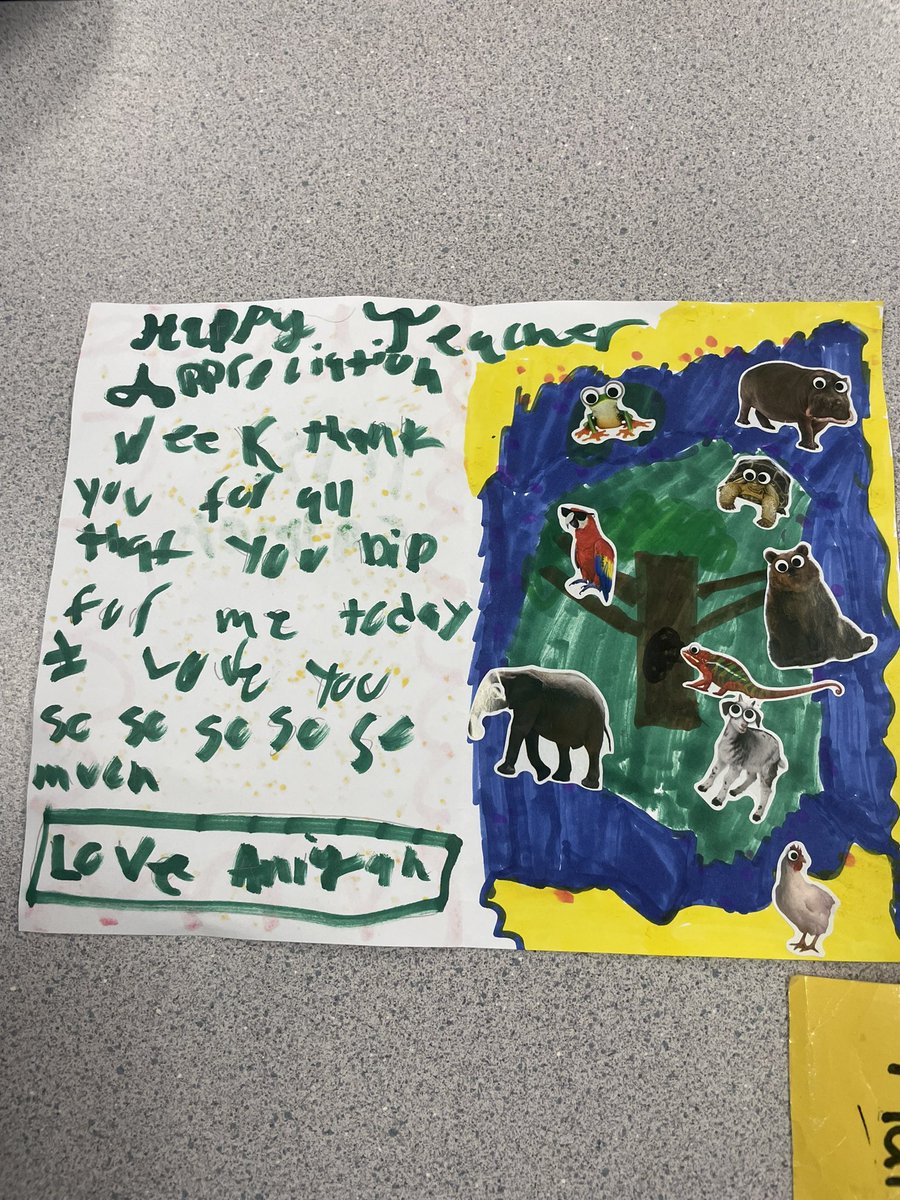 Happy Teacher
Appreciation
Week thank
you for all
that you bip
for me today
I Love you
so so so so so
much
Love Aniyah